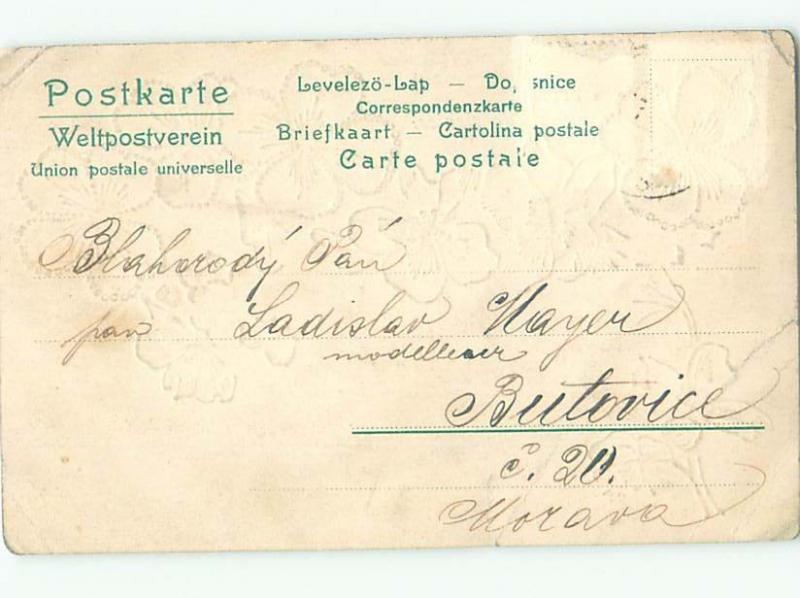 Postkarte
Weltpostverein
Union postale universelle
Levelező-Lap — Do snice
Correspondenzkarte
Briefkaart — Cartolina postale
Carte postale
Blahorodý Pán
pan Ladislav Mayer
modelleur
Butovice
č. 20.
Morava